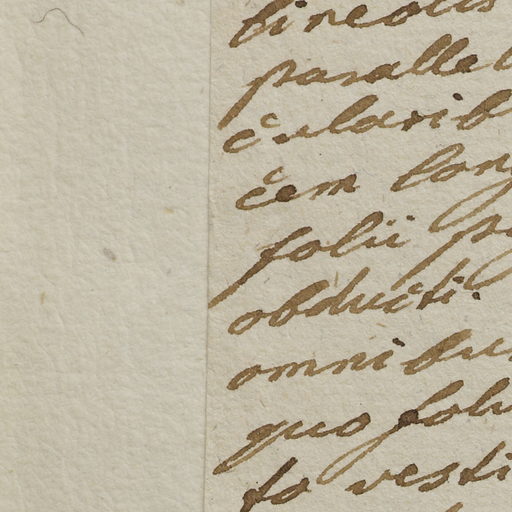 lineolis
parallel
cularib
cem long
folii p
obducti.
omnibus
quo foli
to vesti